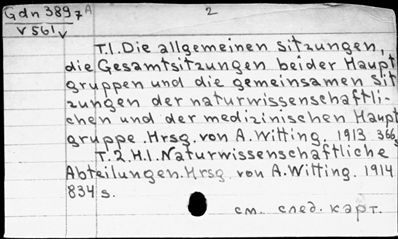 Gdn 3897A
2
V561v
T.1. Die allgemeinen Sitzungen,
die Gesamtsitzungen beider Haupt
gruppen und die gemeinsamen Sit
zungen der naturwissenschaftli-
chen und der medizinischen Haupt
gruppe. Hrsg. von A. Witting. 1913 366 s
T. 2. H.1. Naturwissenschaftliche
Abteilungen. Hrsg. von A. Witting. 1914
834 s.
см. след. карт.